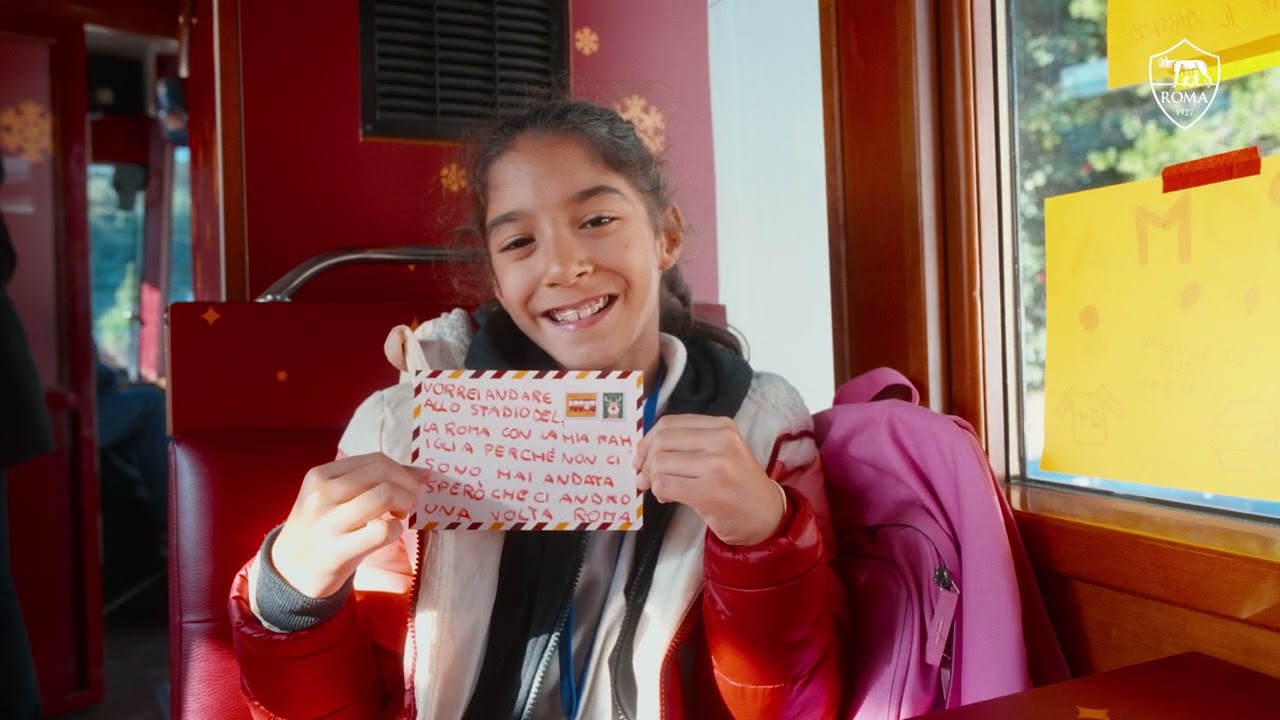 VORREI ANDARE
ALLO STADIO DEL,
LA ROMA CON LA MIA FAM
IGLIA PERCHÉ NON CI
SONO MAI ANDATA
SPERÒ CHE CI ANDRO
UNA VOLTA. ROMA
ROMA
1927
M